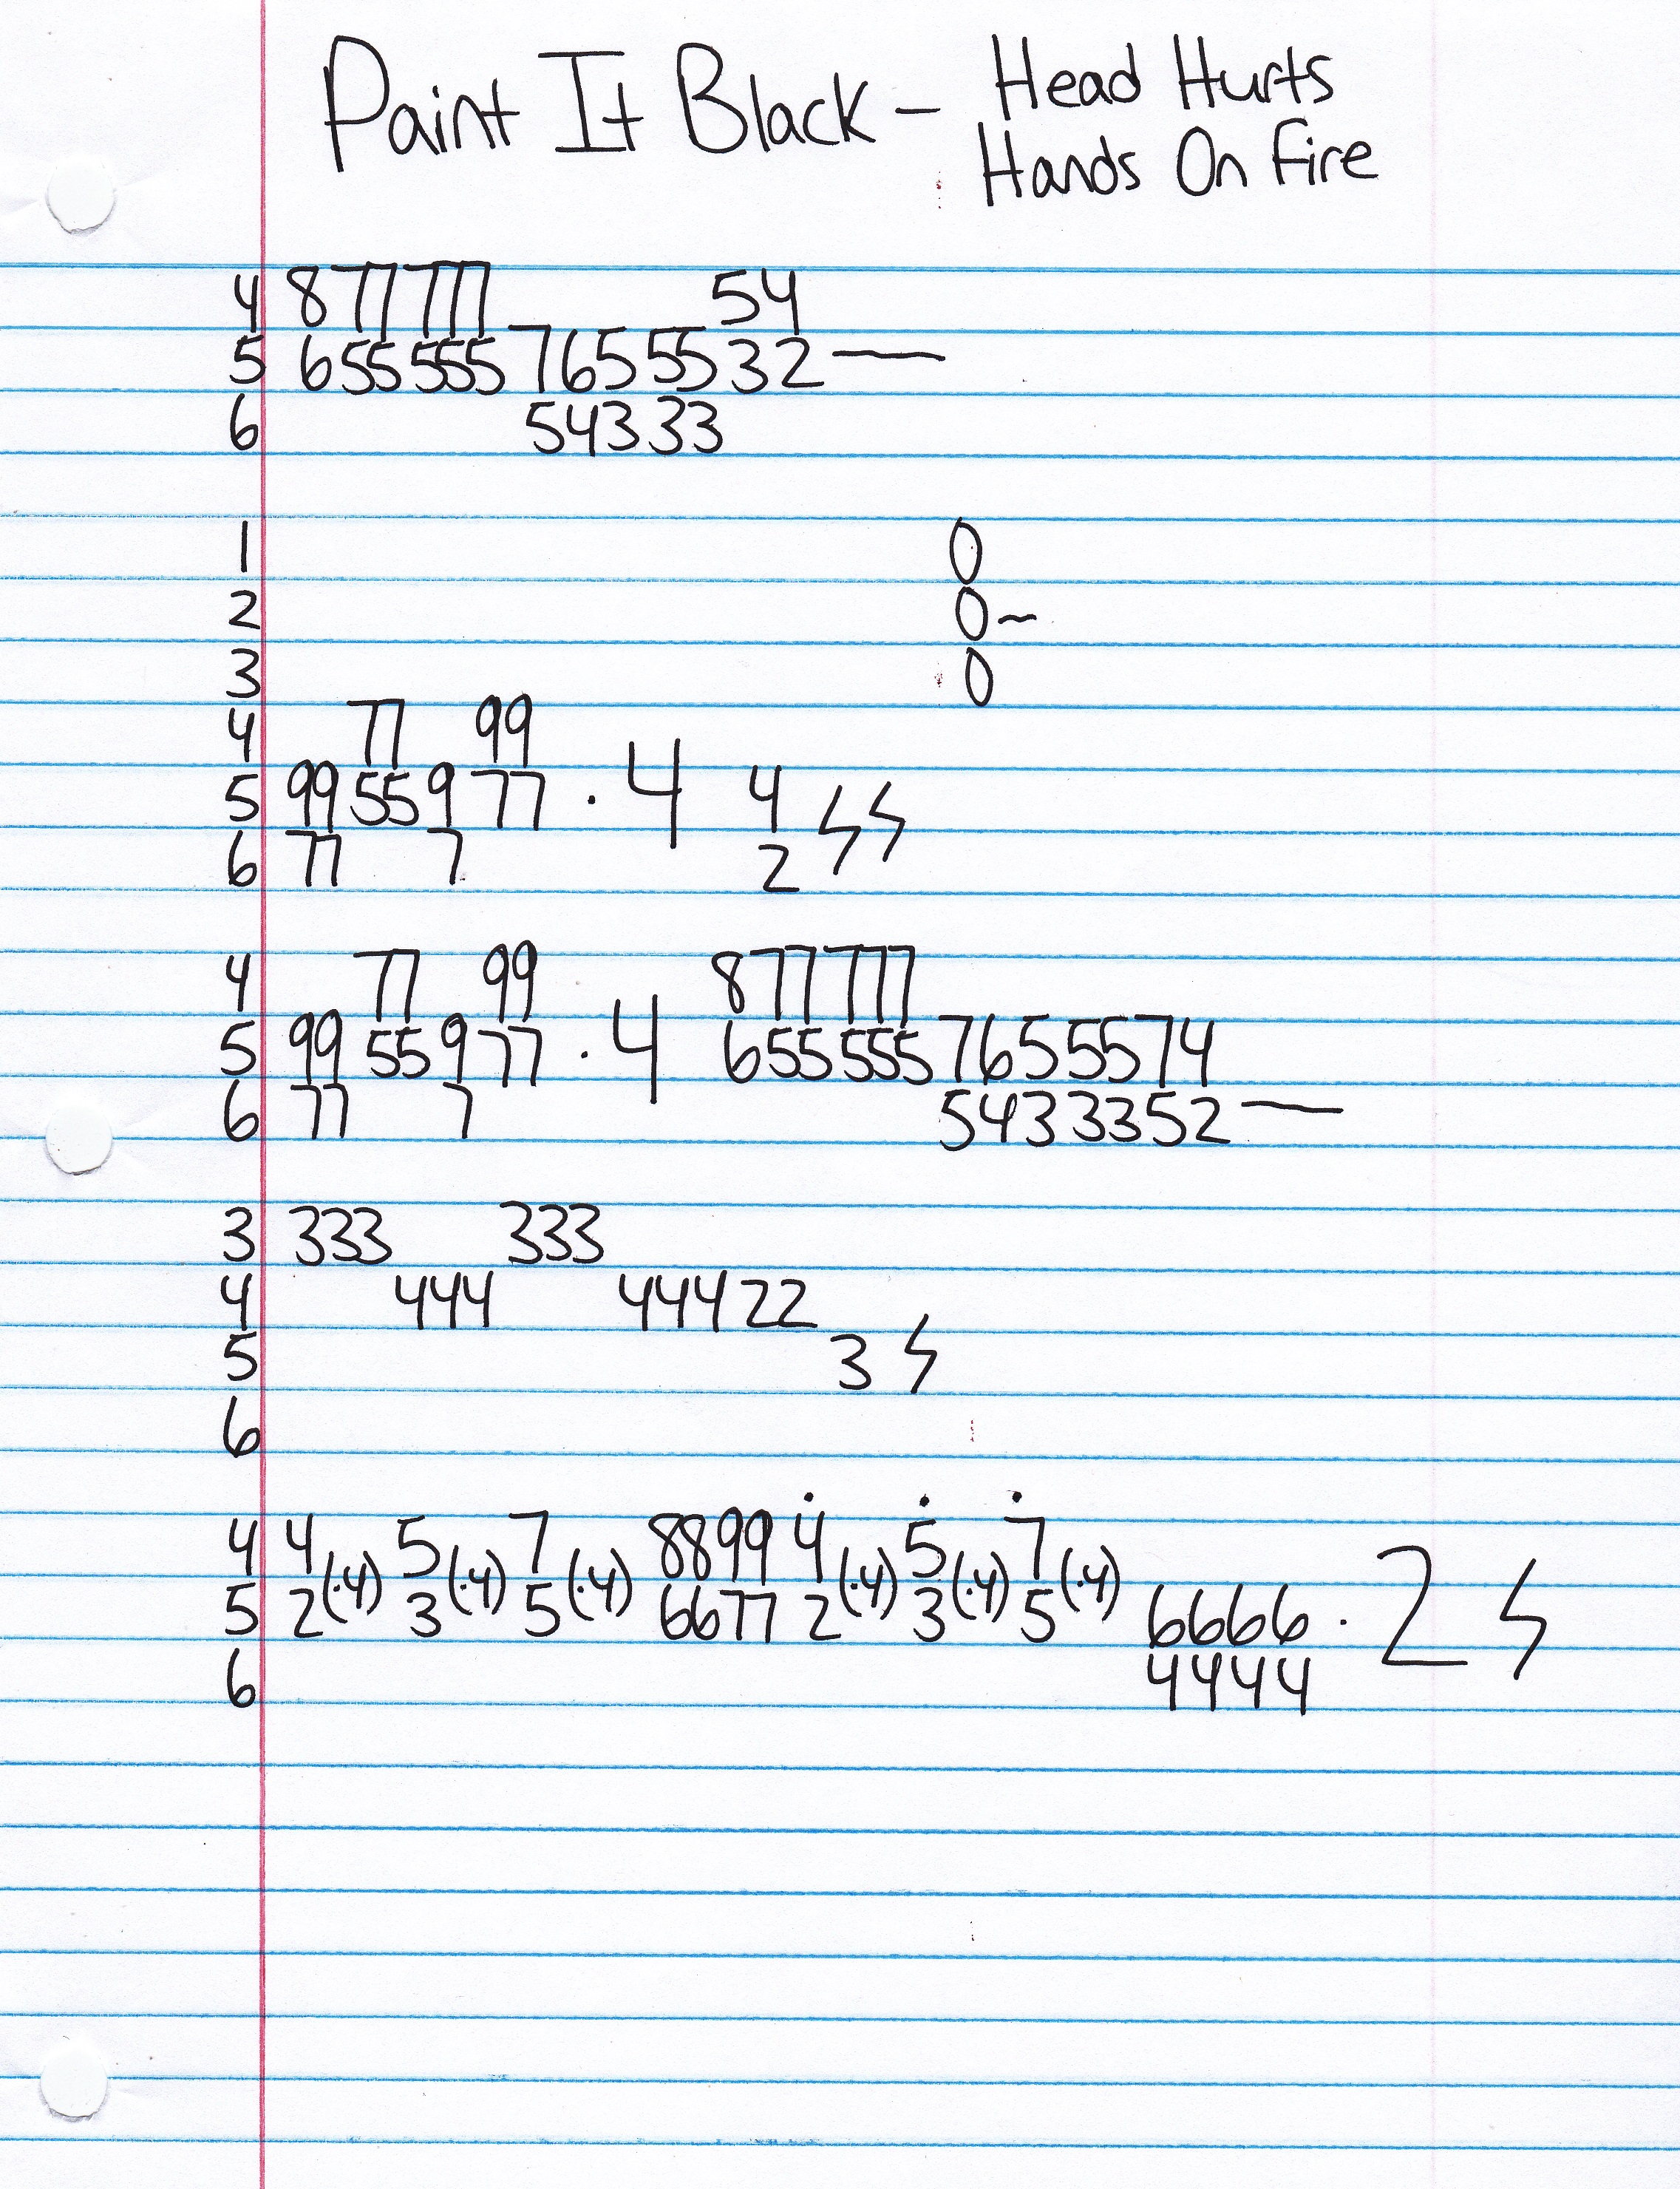 Paint It Black - Head Hurts
Hands On Fire
4 877777 54
5 655555 7655532 —
6 54333
1 0
2 0~
3 0
4 77 99
5 99 55 9 77 · 4 4 ϟϟ
6 77 7 2
4 77 99 877777
5 99 55 9 77 · 4 655555 7655574
6 77 7 5433352 —
3 333 333
4 444 444 22
5 3 ϟ
6
4 4 (·4) 5 (·4) 7 (·4) 8899 4̇ (·4) 5̇ (·4) 7̇ (·4)
5 2 3 5 6677 2 3 5 6666 · 2 ϟ
6 4444